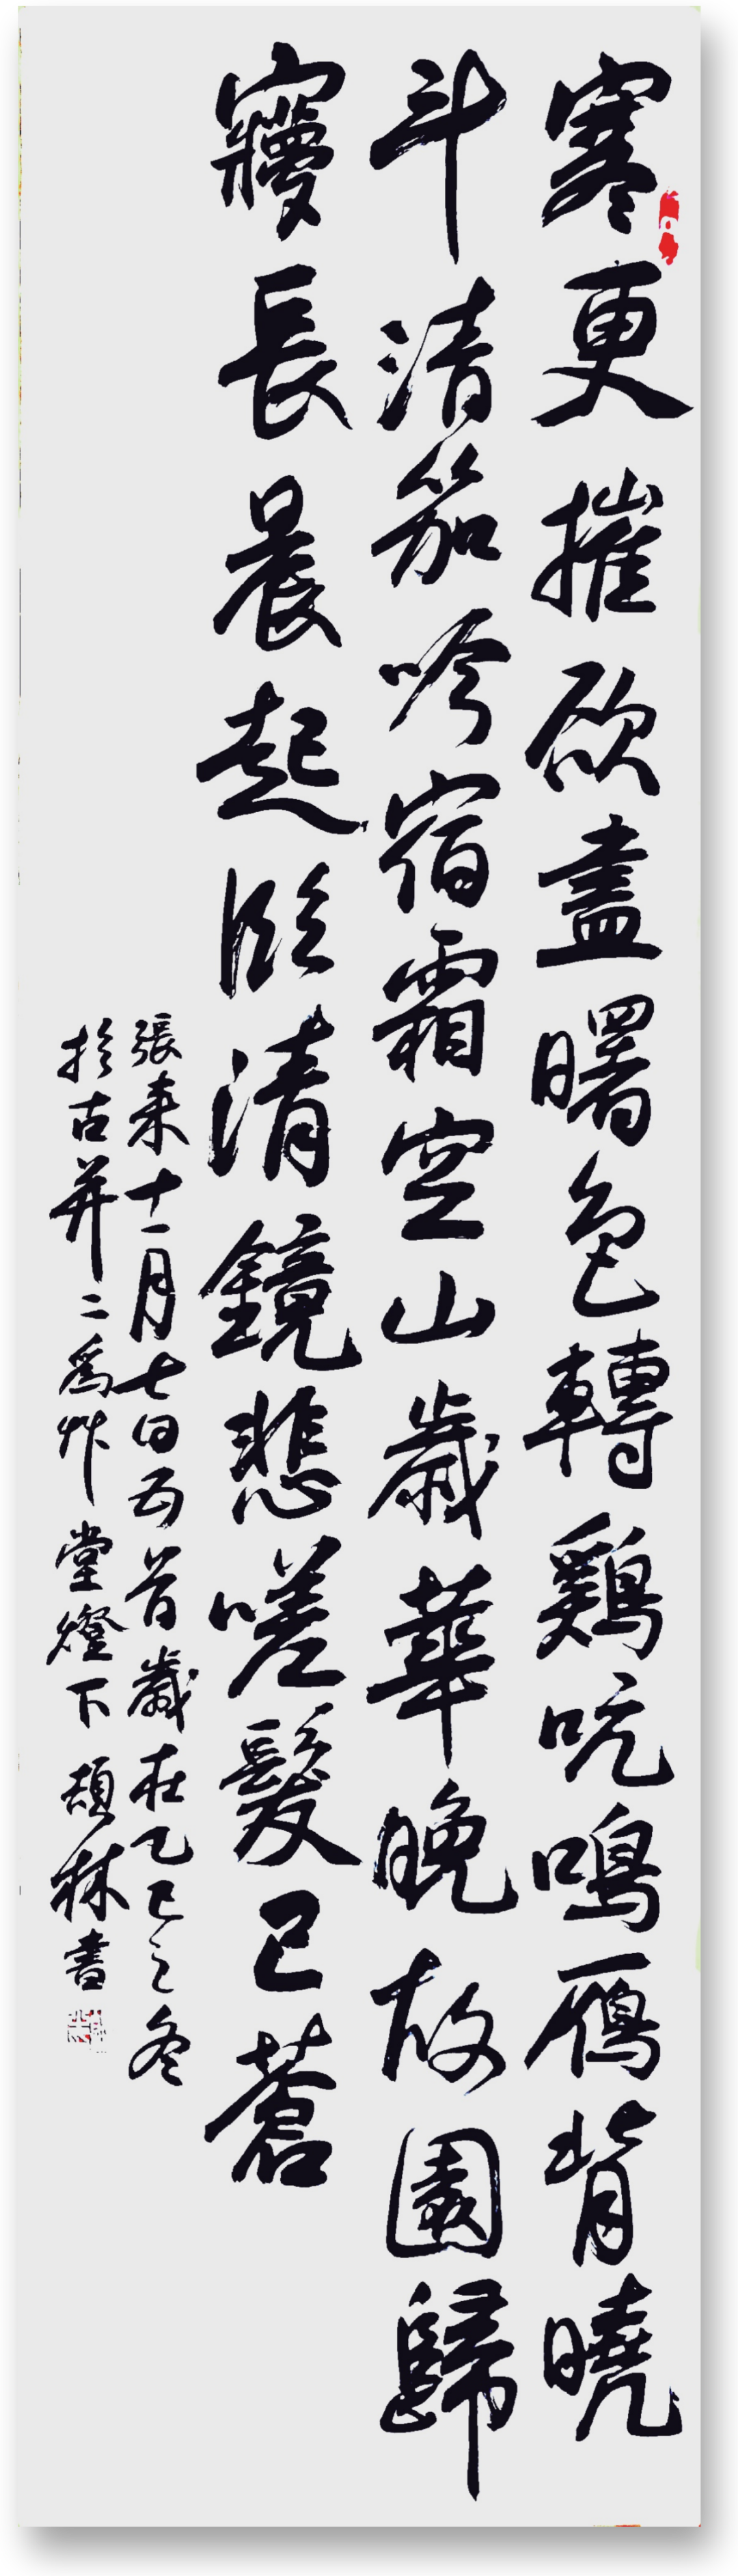 寒更摧欲盡曙色轉鷄吭鳴雁背曉
斗清笳吟宿霜空山歲華晚故園歸
寢長晨起臨清鏡悲嗟髮已蒼
張耒十一月七日五首歲在乙巳之冬
於古并二爲艸堂燈下頡林書